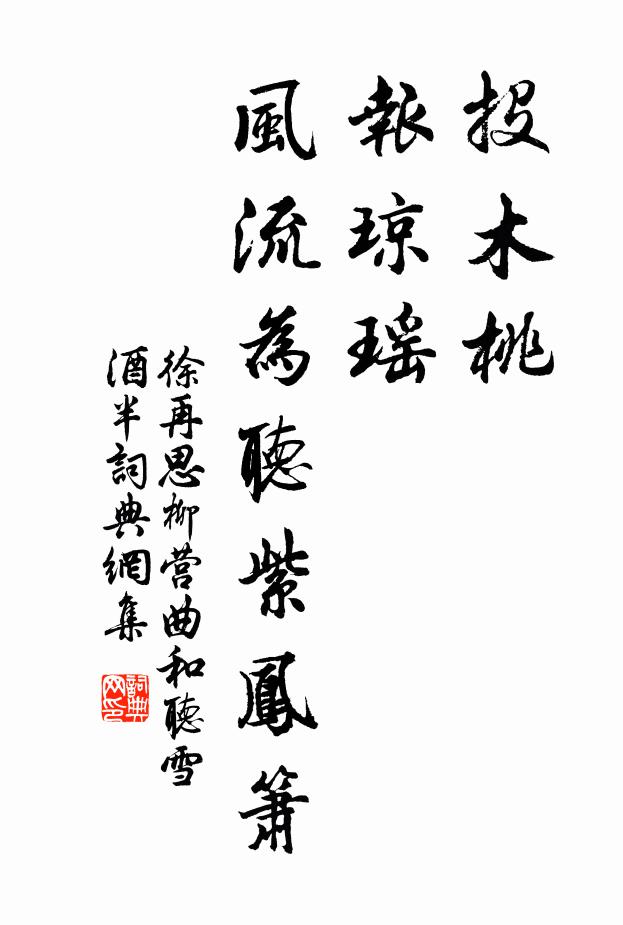 投木桃
報琼瑶
風流為聽紫鳳簫
徐再思柳营曲和聽雪
酒半詞典網集
詞典网印